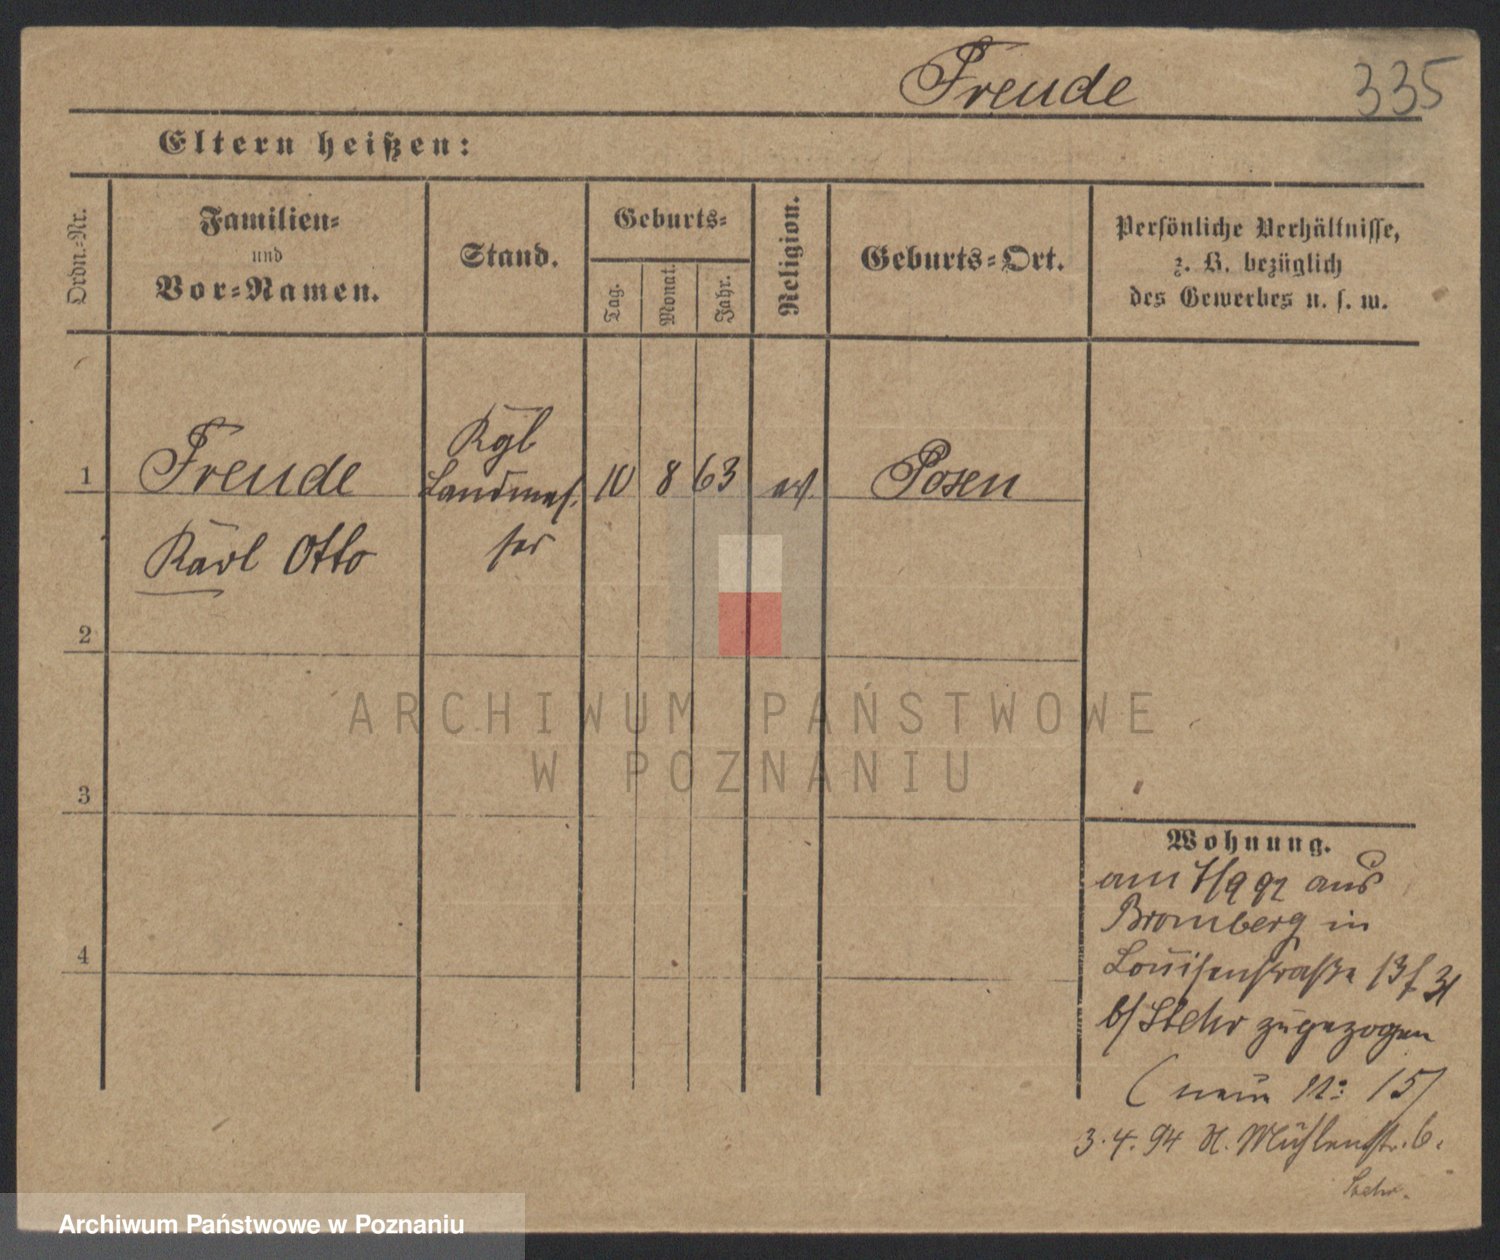 Freude 335
Eltern heißen:
Ordn.-Nr.
Familien-
und
Vor-Namen.
Stand.
Geburts-
Tag.
Monat.
Jahr.
Religion.
Geburts-Ort.
Persönliche Verhältnisse,
z. B. bezüglich
des Gewerbes u. s. w.
Kgl
1 Freude Landmes- 10 8 63 ev. Posen
Karl Otto ser
2
ARCHIWUM PAŃSTWOWE
W POZNANIU
3
Wohnung.
am 1/9 92 aus
Bromberg in
4
Louisenstraße 13f
b/ Stehr zugezogen
(neue N: 15)
3.4.94 N. Mühlenstr. 6.
Stehr.
Archiwum Państwowe w Poznaniu